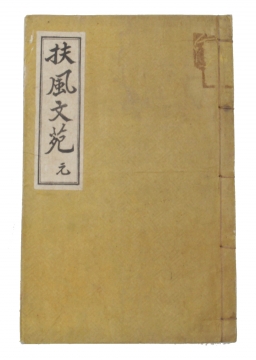 扶風文苑 元